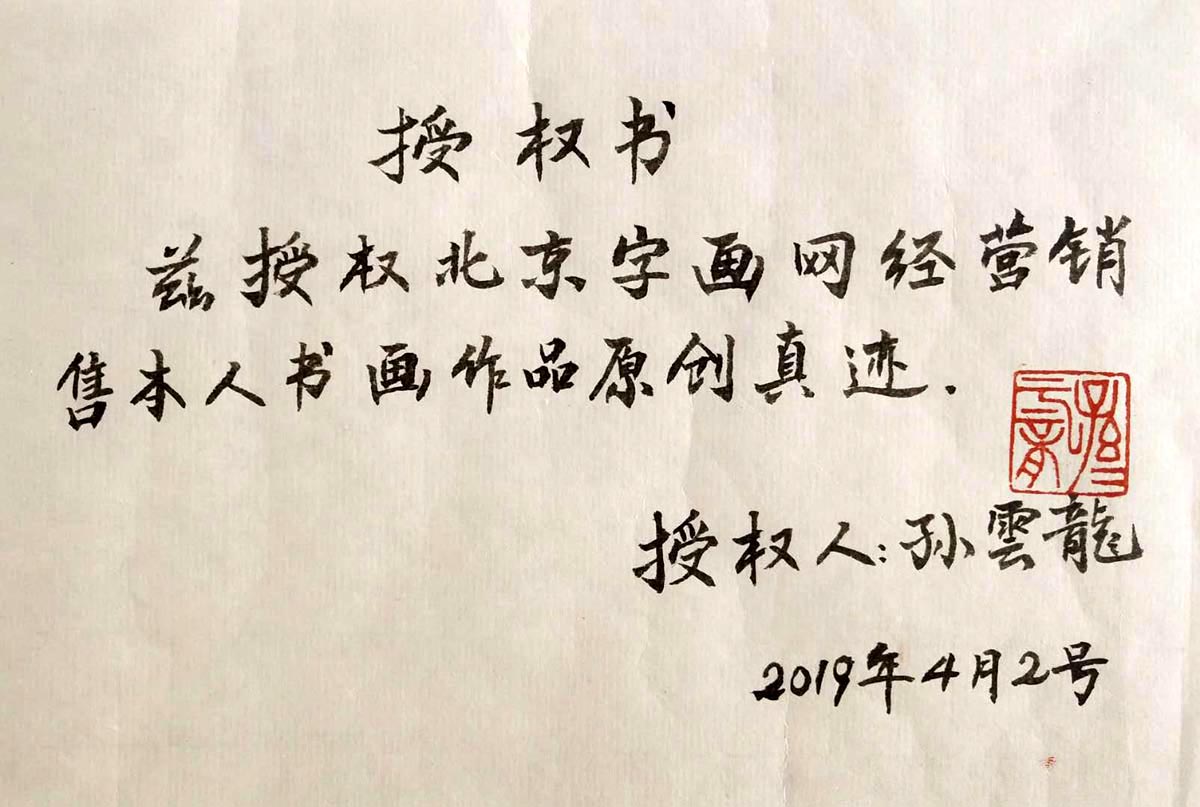 授权书
兹授权北京字画网经营销
售本人书画作品原创真迹.
授权人:孙雲龍
2019年4月2号